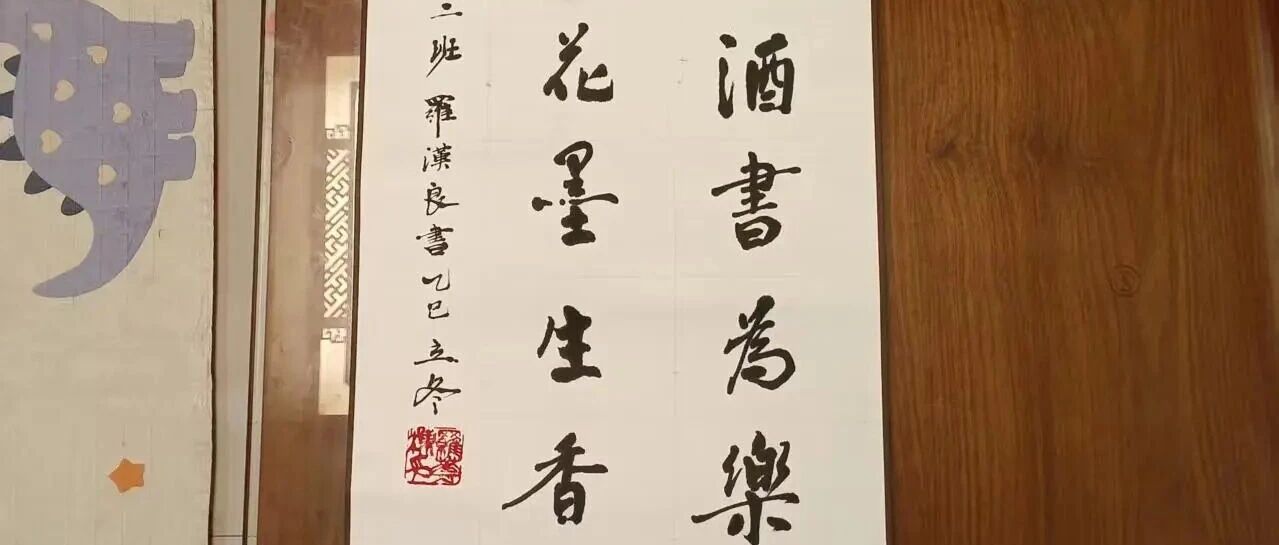 酒書為樂
花墨生香
二班 羅漢良書乙巳立冬